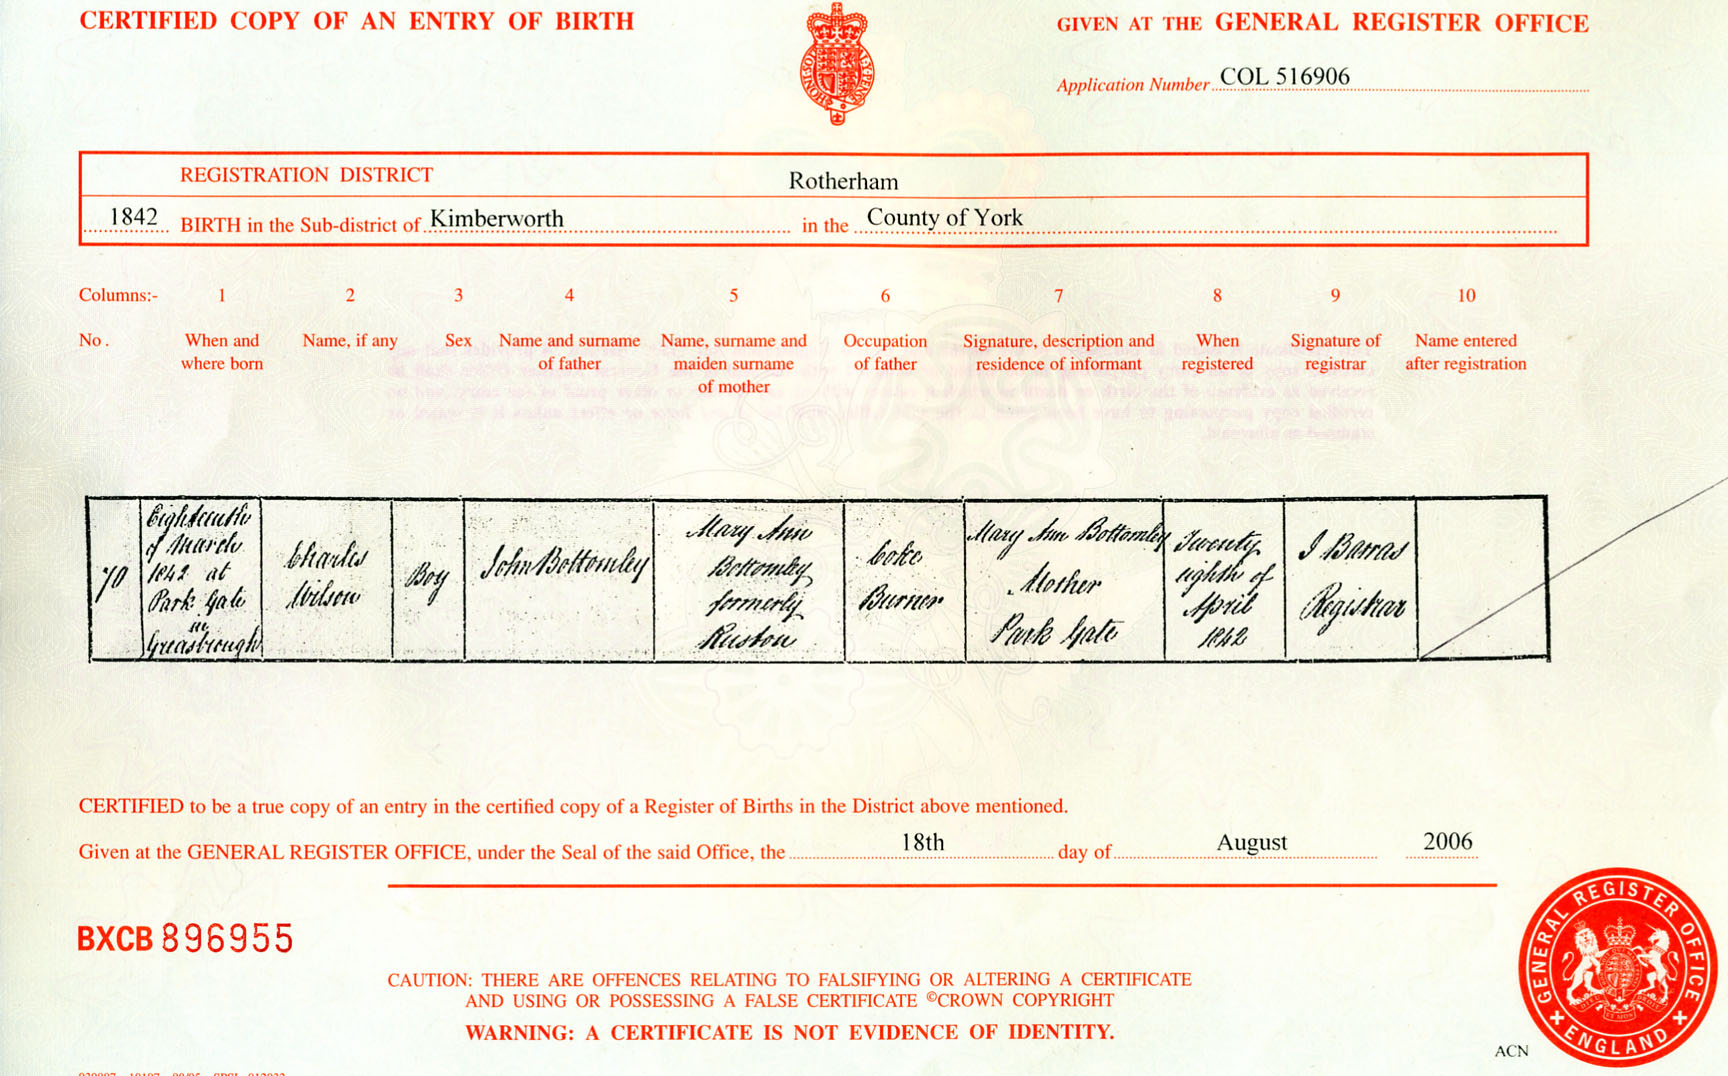 CERTIFIED COPY OF AN ENTRY OF BIRTH
GIVEN AT THE GENERAL REGISTER OFFICE
HONI SOI
Y PENSE
Application Number COL 516906
REGISTRATION DISTRICT Rotherham
1842 BIRTH in the Sub-district of Kimberworth in the County of York
Columns:- 1 2 3 4 5 6 7 8 9 10
No. When and where born
Name, if any
Sex
Name and surname of father
Name, surname and maiden surname of mother
Occupation of father
Signature, description and residence of informant
When registered
Signature of registrar
Name entered after registration
70
Eighteenth
of March
1842 at
Park Gate
in
Greasbrough
Charles
Wilson
Boy
John Bottomley
Mary Ann
Bottomley
formerly
Ruston
Coke
Burner
Mary Ann Bottomley
Mother
Park Gate
Twenty
eighth of
April
1842
J Barras
Registrar
CERTIFIED to be a true copy of an entry in the certified copy of a Register of Births in the District above mentioned.
Given at the GENERAL REGISTER OFFICE, under the Seal of the said Office, the 18th day of August 2006
BXCB 896955
CAUTION: THERE ARE OFFENCES RELATING TO FALSIFYING OR ALTERING A CERTIFICATE
AND USING OR POSSESSING A FALSE CERTIFICATE ©CROWN COPYRIGHT
WARNING: A CERTIFICATE IS NOT EVIDENCE OF IDENTITY.
GENERAL REGISTER OFFICE
ENGLAND
ACN